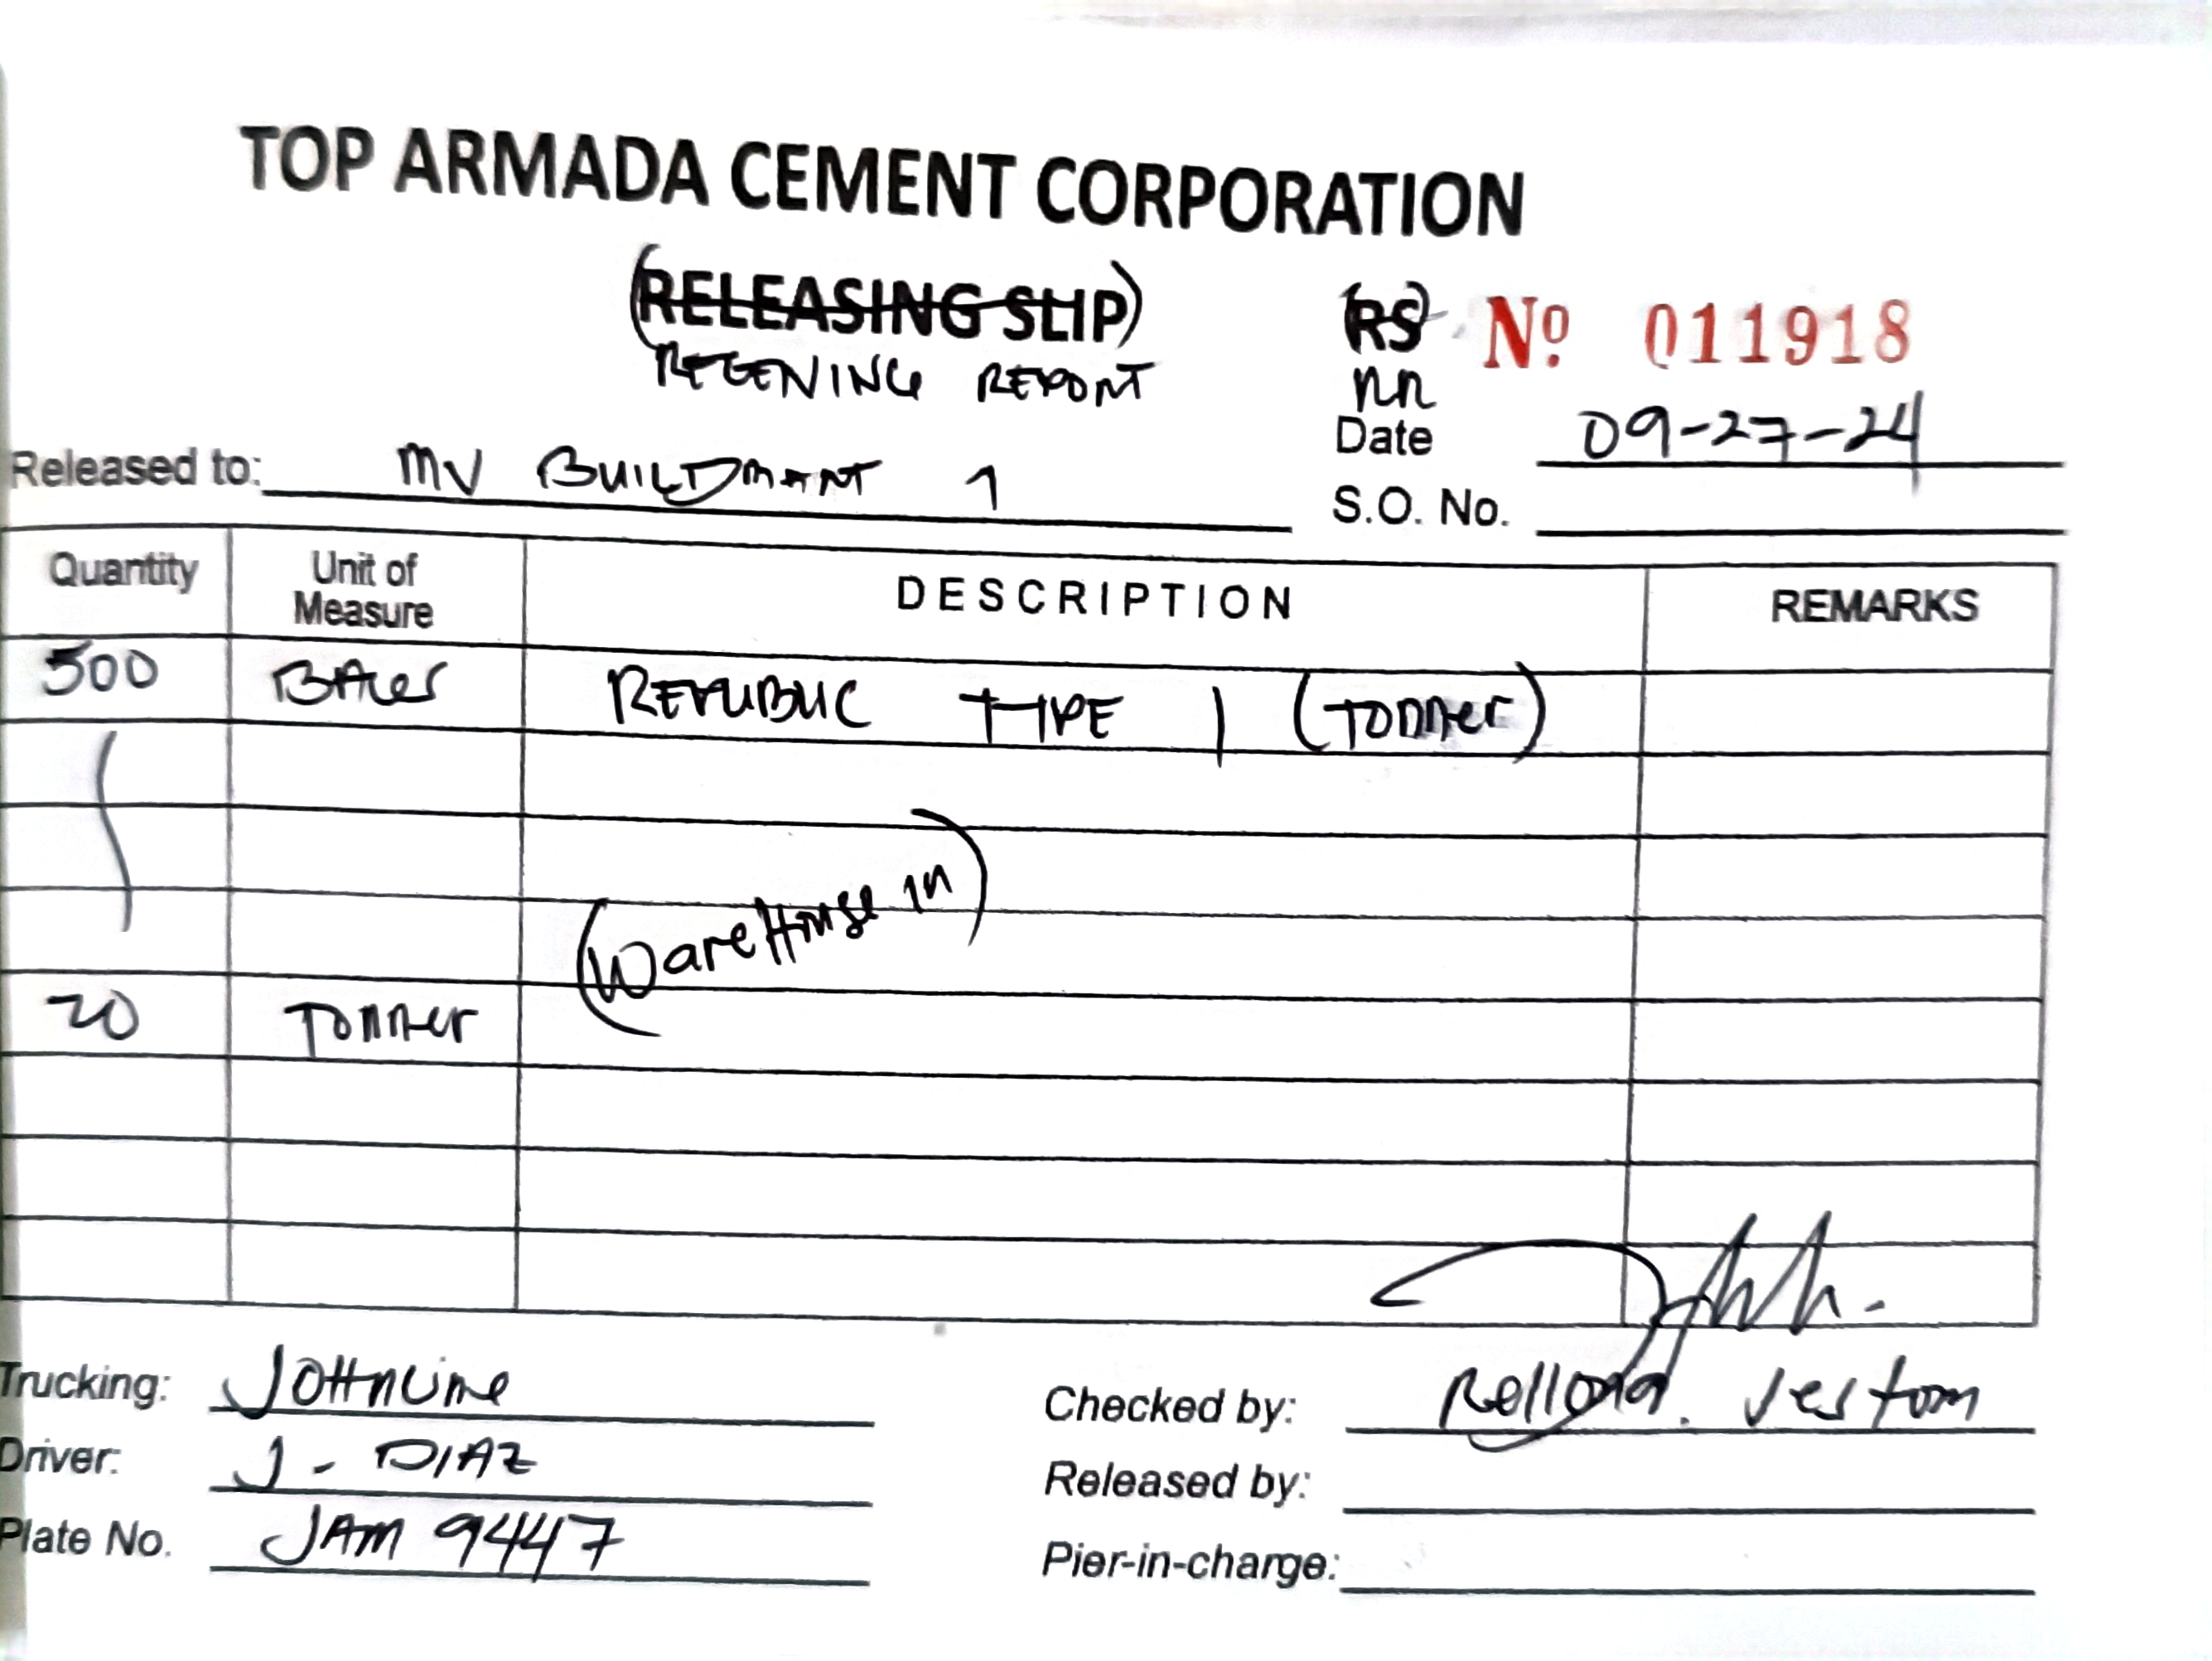 TOP ARMADA CEMENT CORPORATION
(RELEASING SLIP)
RECEIVING REPORT
(RS) Nº 011918
RR
Date 09-27-24
Released to: MV BUILDMART 1
S.O. No.
Quantity Unit of Measure DESCRIPTION REMARKS
500 BAGS REPUBLIC TYPE 1 (TONNER)
(WareHouse in)
20 TONNER
Trucking: JOHNLINE
Driver: J. DIAZ
Plate No. JAM 9447
Checked by: Jestom
Released by:
Pier-in-charge: